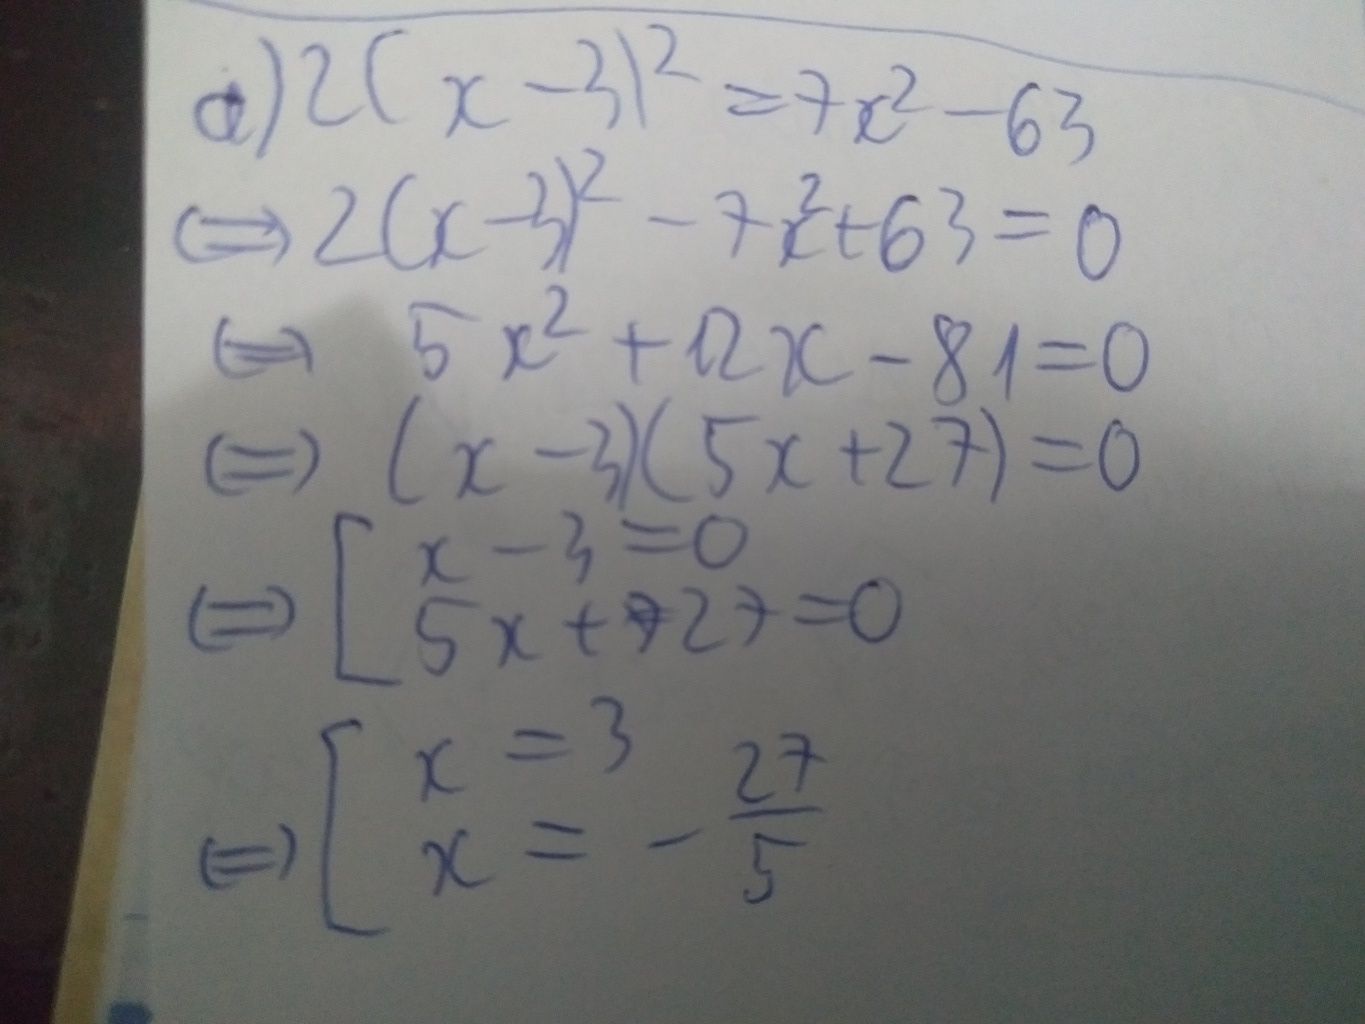 a) 2(x-3)² = 7x² - 63
⇔ 2(x-3)² - 7x² + 63 = 0
⇔ 5x² + 12x - 81 = 0
⇔ (x-3)(5x+27) = 0
⇔ [ x-3 = 0
5x + 27 = 0
⇔ [ x = 3
x = - 27/5